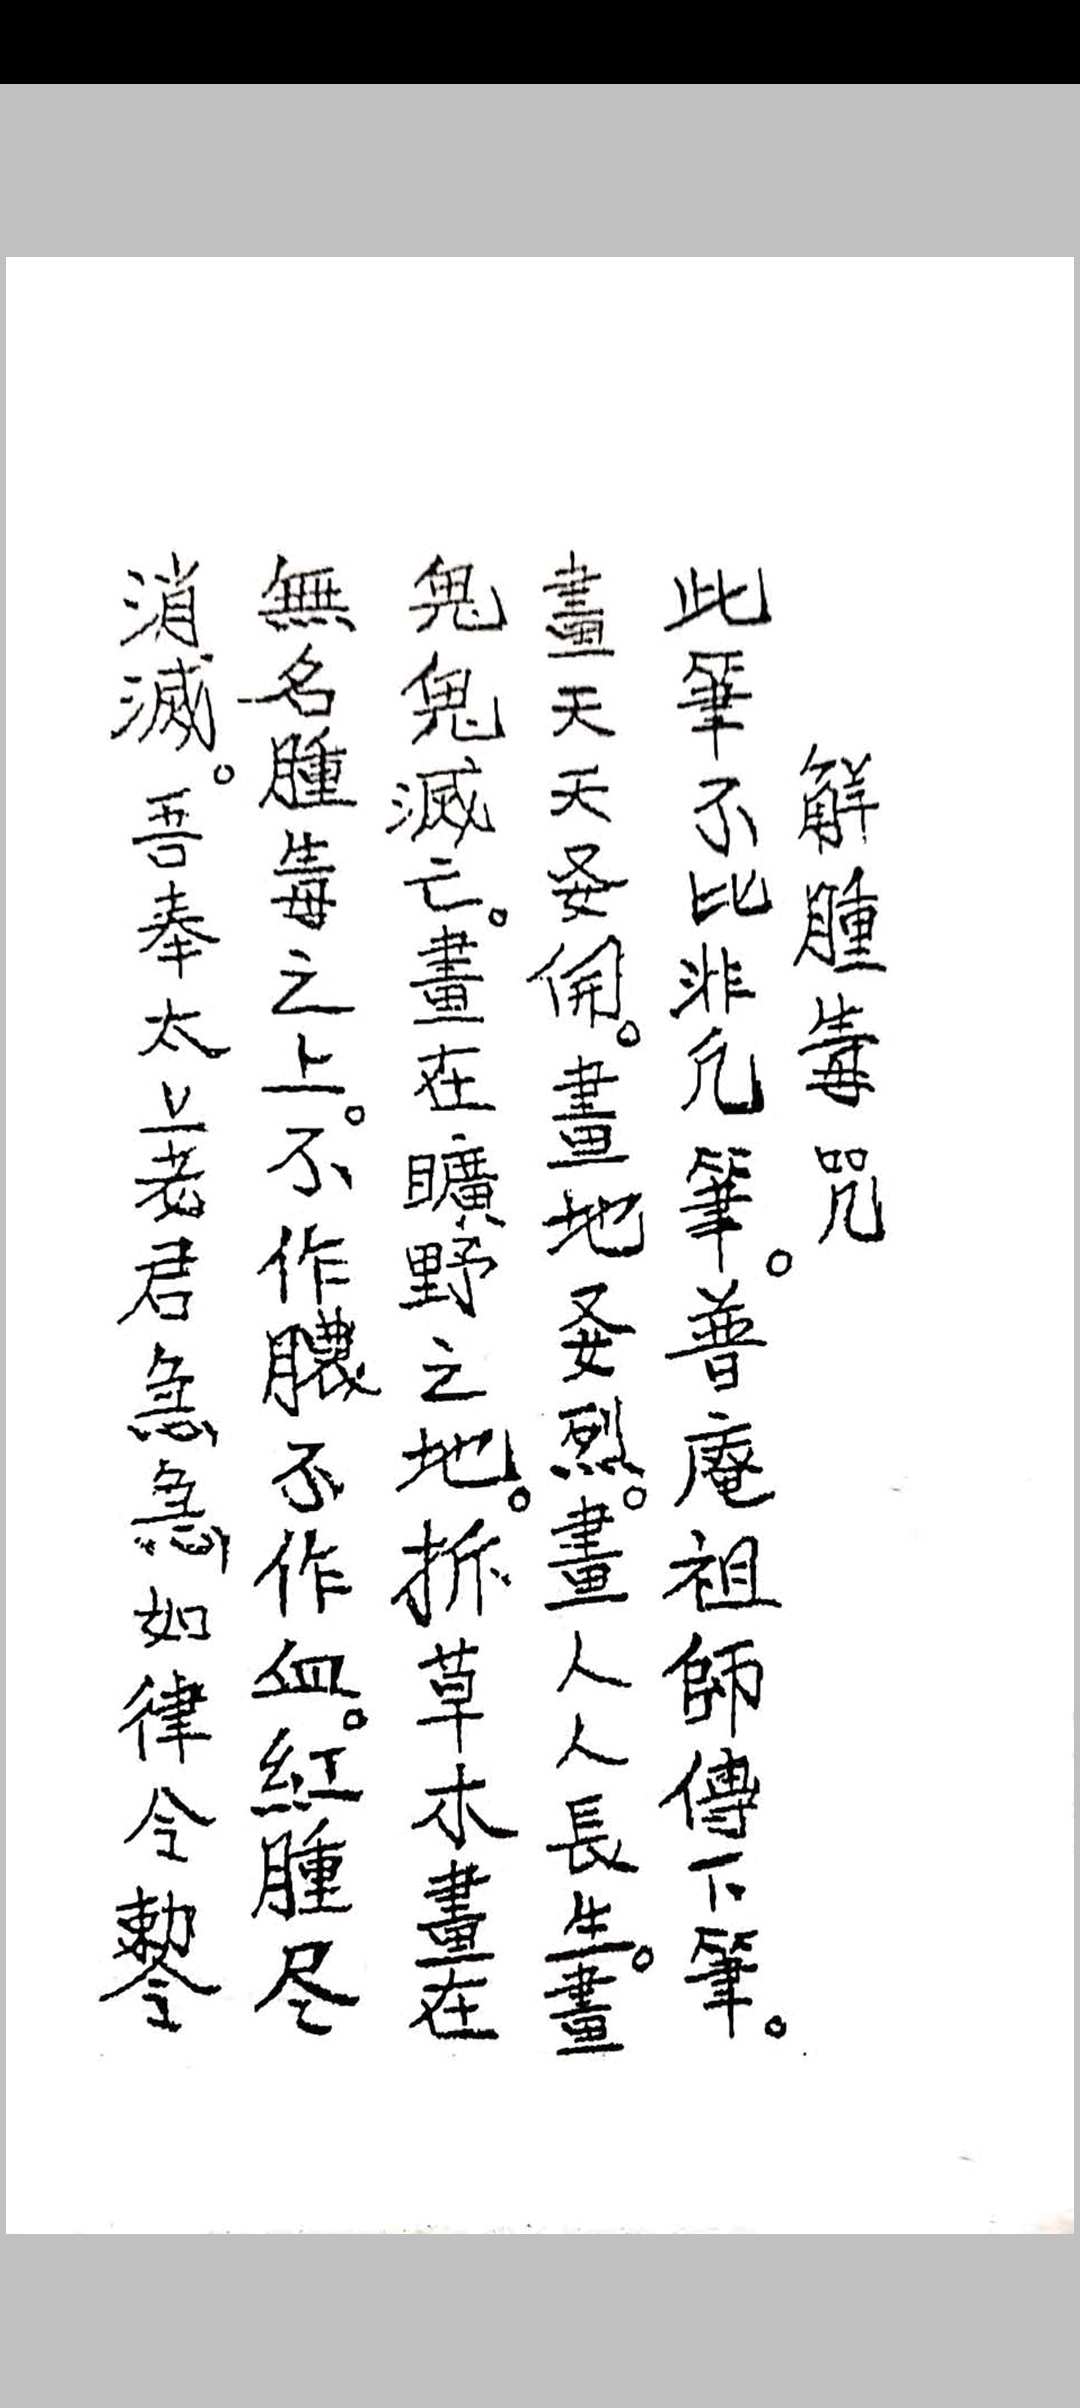 解腫毒咒
此筆不比非凢筆。普庵祖師傳下筆。
畫天天灾開。畫地灾烈。畫人人長生畫
鬼鬼滅亡。畫在曠野之地。拆草木畫在
無名腫毒之上。不作膿不作血。紅腫尽
消滅。吾奉太上老君急急如律令勅令